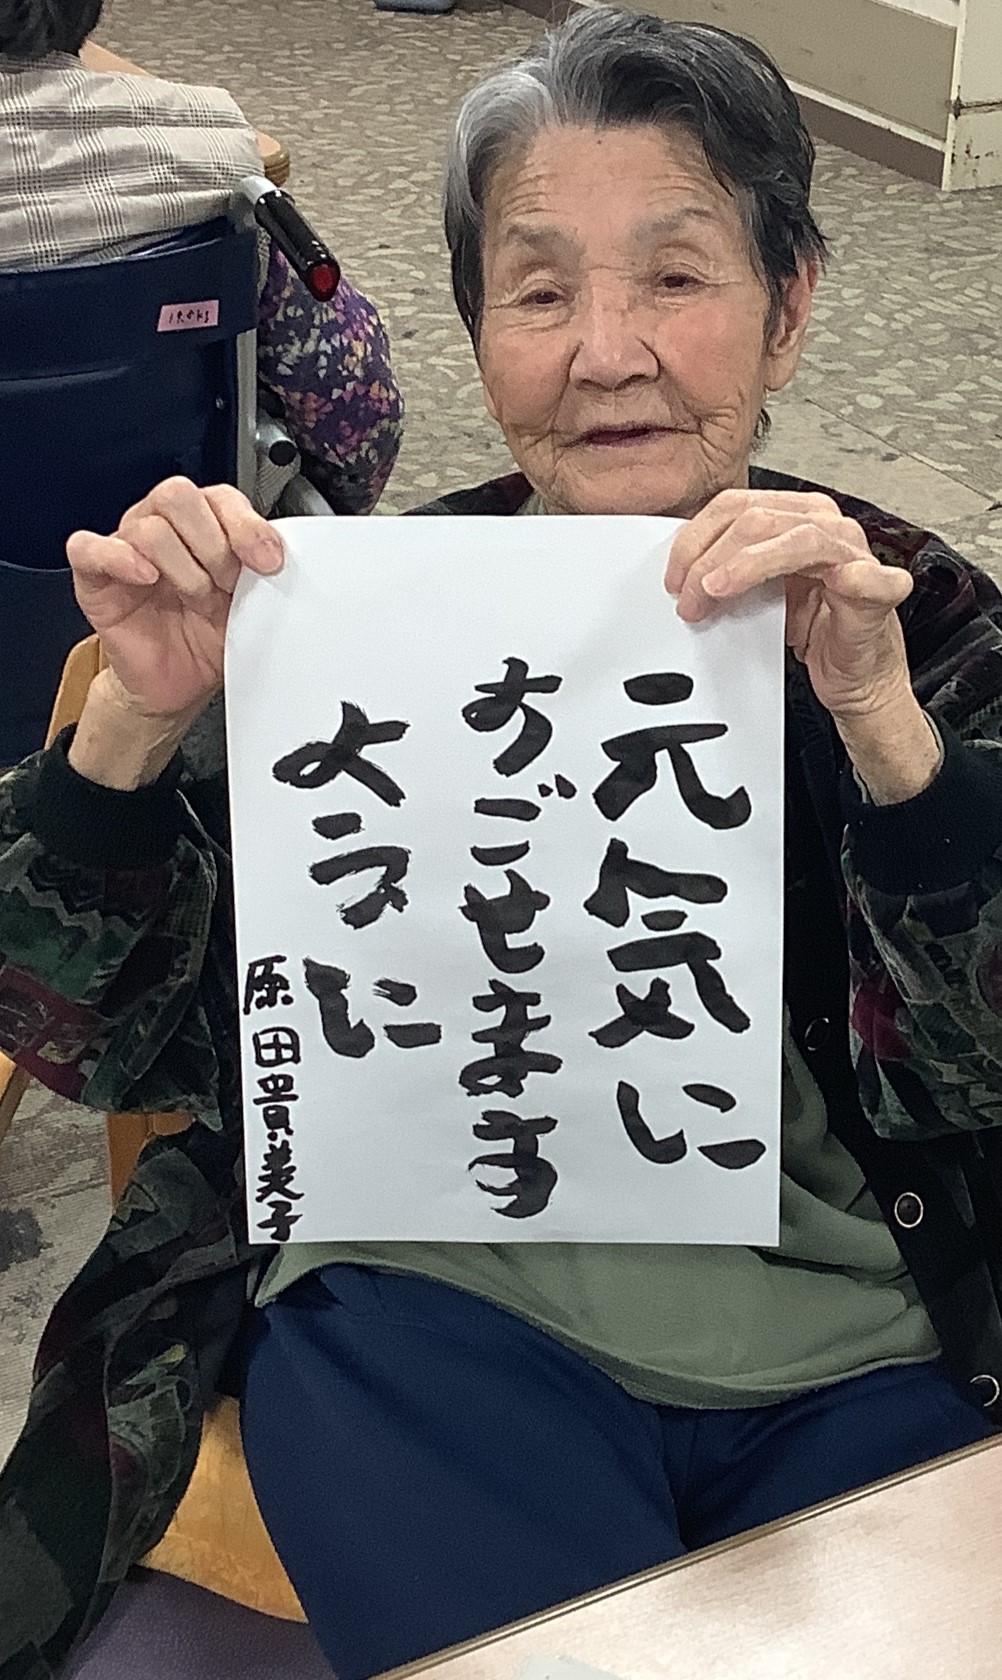 元気に
すごせます
ように
原田貴美子